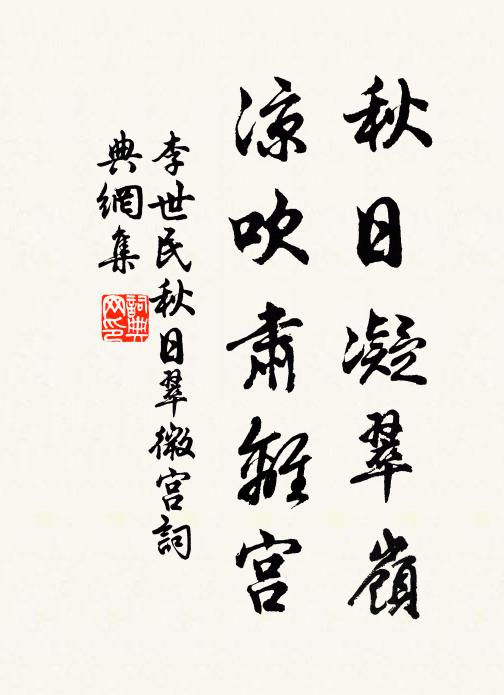 秋日凝翠嶺
涼吹肅離宮
李世民秋日翠微宮詞
典網集
詞典网印